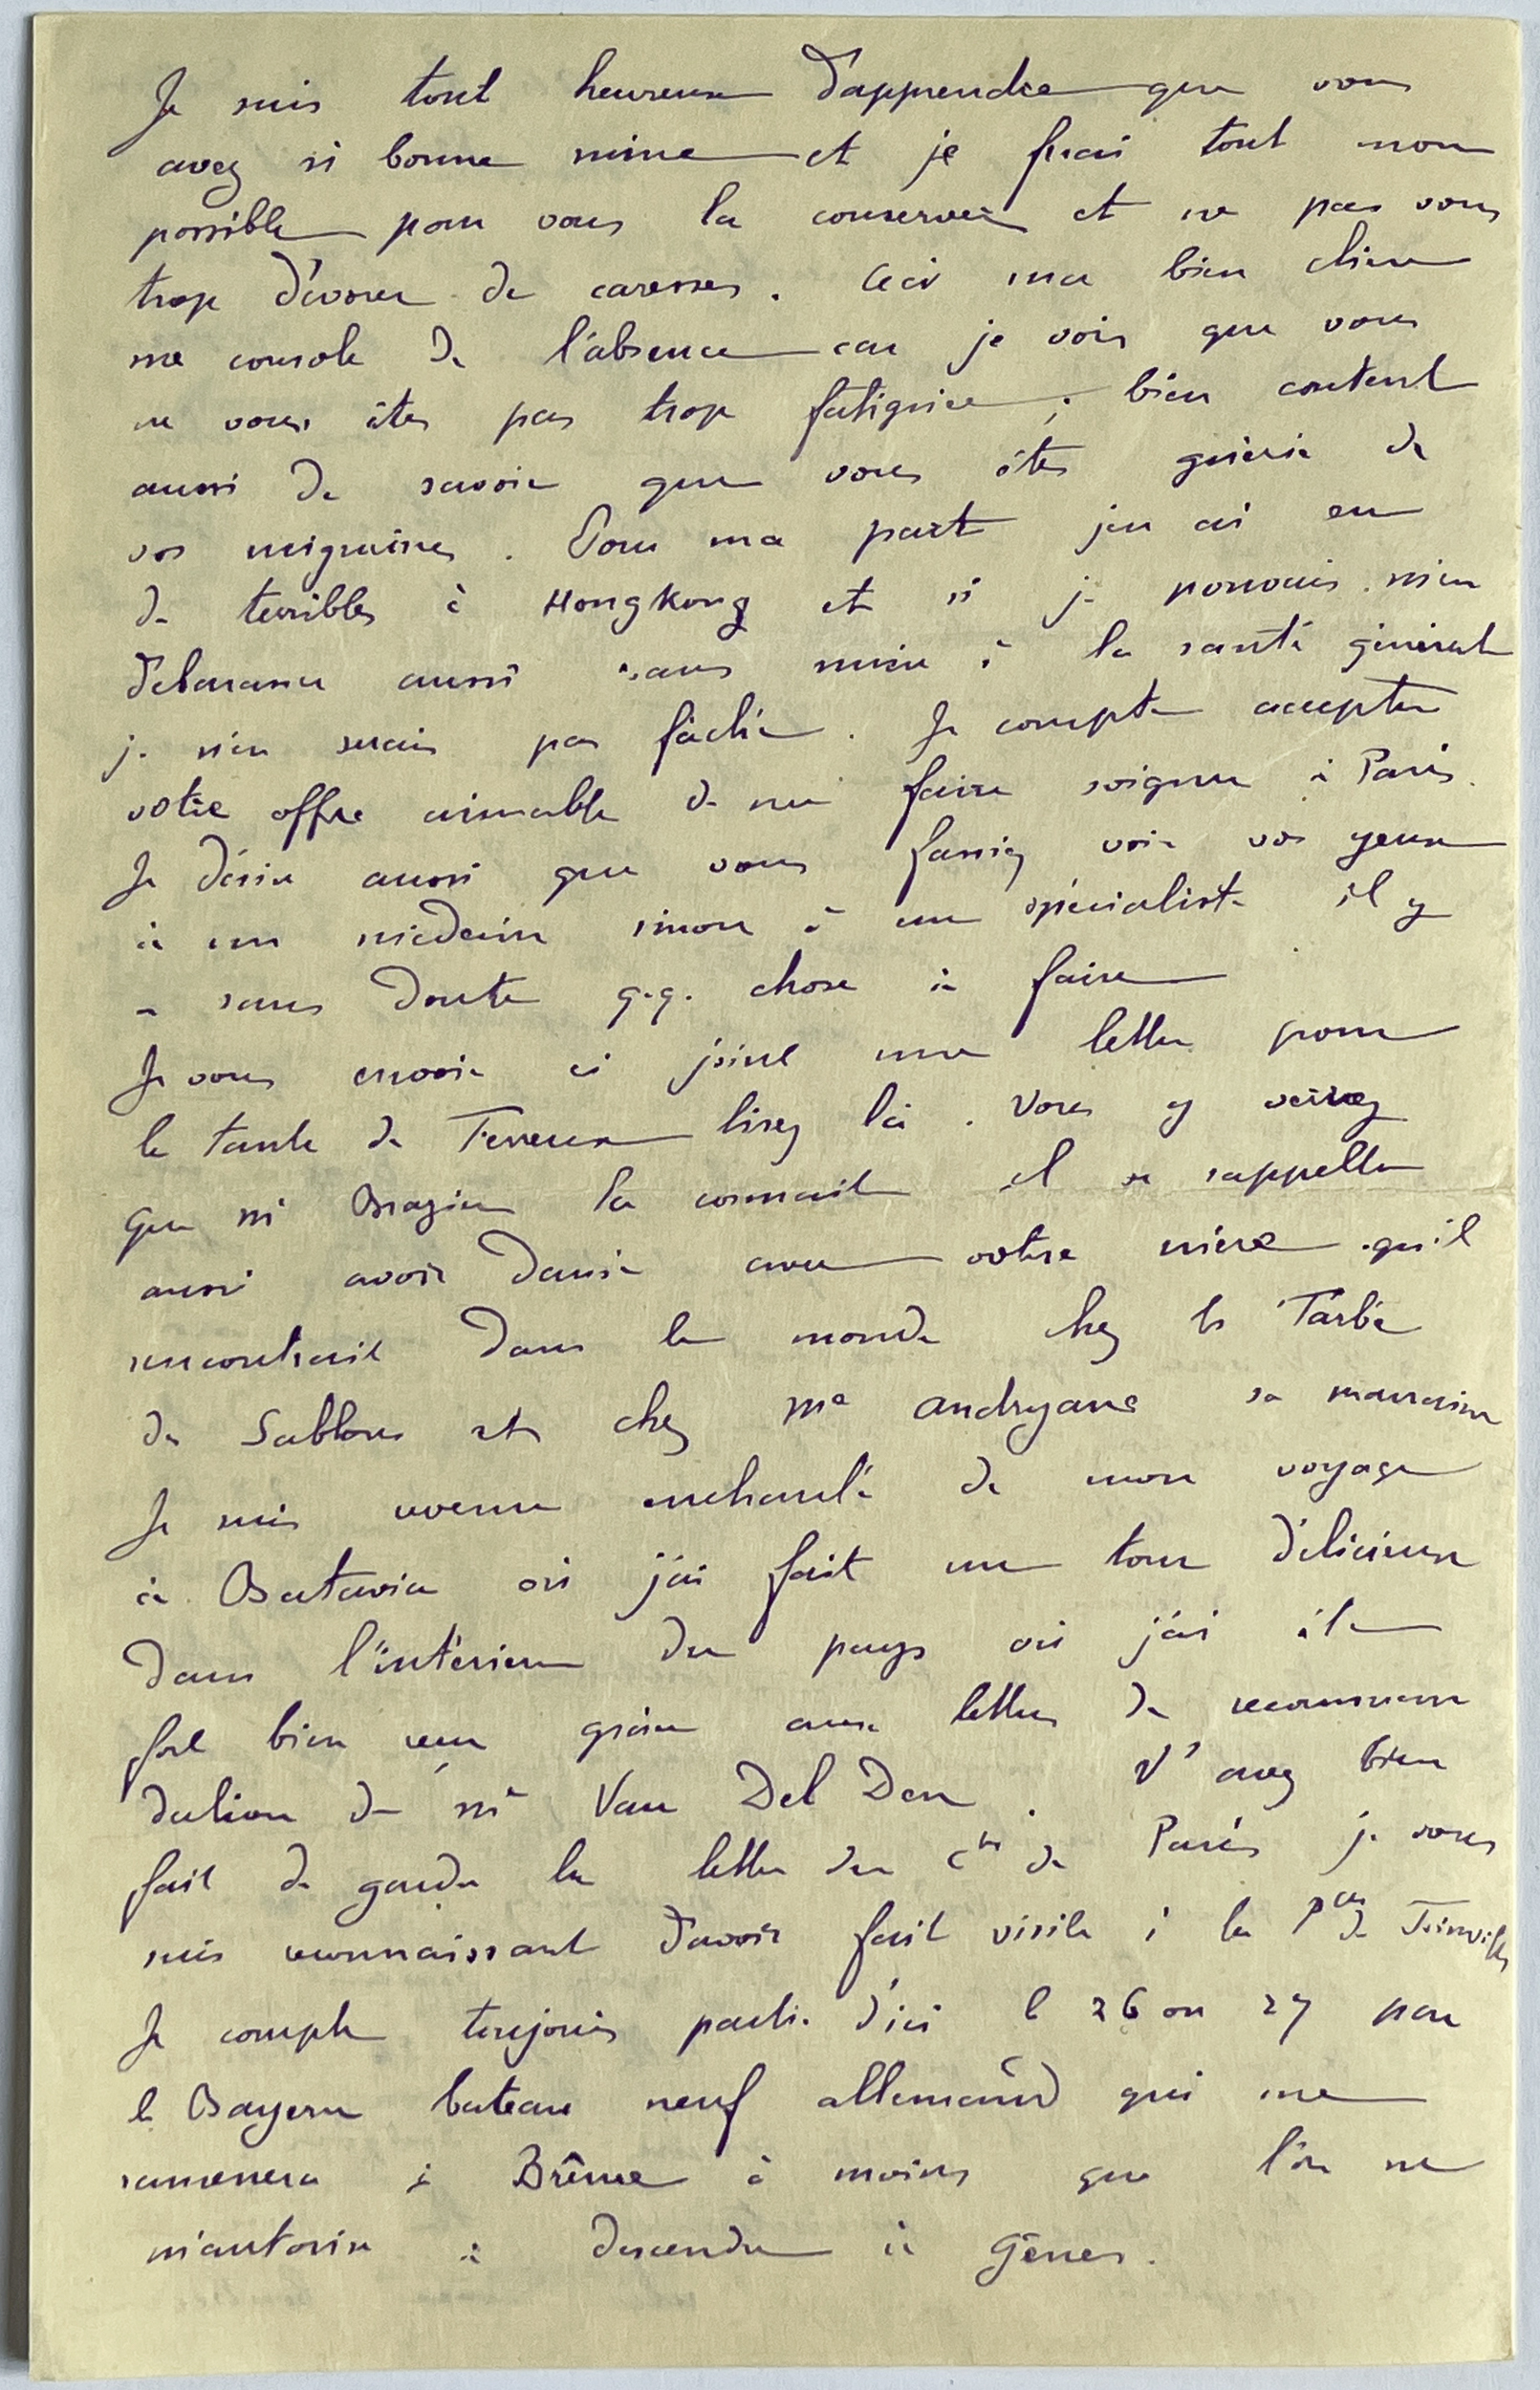 Je suis tout heureux d'apprendre que vous
avez si bonne mine et je ferai tout mon
possible pour vous la conserver et ne pas vous
trop dévorer de caresses. Ceci ma bien chère
me console de l'absence car je vois que vous
ne vous êtes pas trop fatiguée ; bien content
aussi de savoir que vous êtes guérie de
vos migraines. Pour ma part j'en ai eu
de terribles à Hongkong et si je pouvais m'en
débarasser aussi sans nuire à la santé générale
je n'en serais pas fâché. Je compte accepter
votre offre aimable de me faire soigner à Paris.
Je désire aussi que vous fassiez voir vos yeux
à un médecin sinon à un spécialiste il y
a sans doute q.q. chose à faire
Je vous envoie ci joint une lettre pour
la tante de Ferreux lisez la. Vous y verrez
que Mr Brazier la connait il se rappelle
aussi avoir dansé avec votre mère qu'il
rencontrait dans le monde chez les Tarbé
des Sablons et chez Me Andryane sa marraine
Je suis revenu enchanté de mon voyage
à Batavia où j'ai fait un tour délicieux
dans l'intérieur du pays où j'ai été
fort bien reçu grâce aux lettres de recomman
dation de Mr Van Del Den. V' avez bien
fait de garder la lettre du Cte de Paris je vous
suis reconnaissant d'avoir fait visite à la Pcesse de
Je compte toujours partir d'ici le 26 ou 27 par
le Bayern bateau neuf allemand qui me
ramenera à Brême à moins que l'on ne
m'autorise à descendre à Gênes.